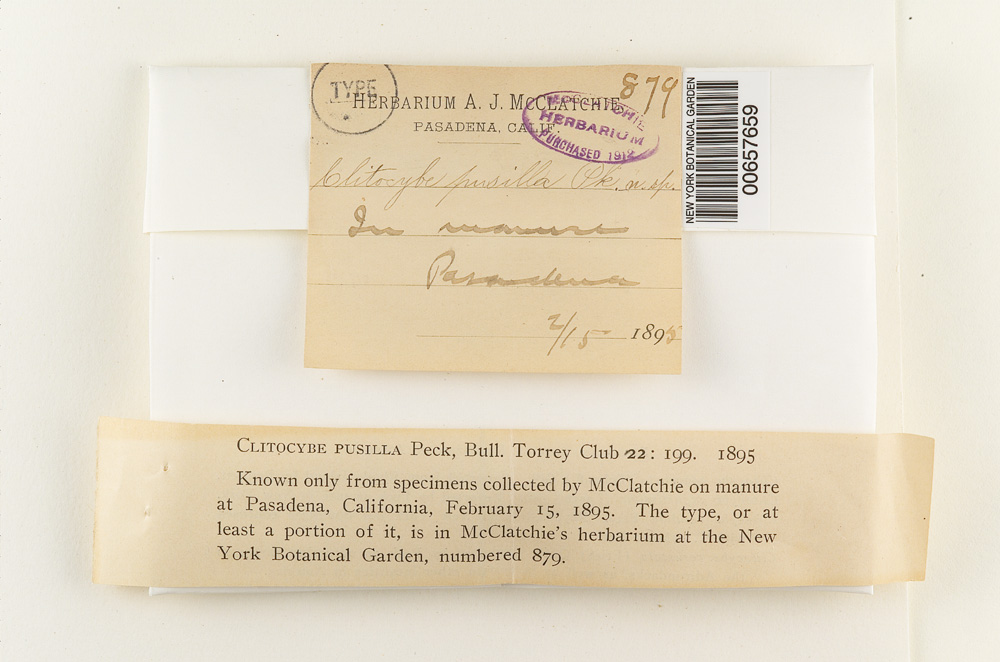 TYPE
879
HERBARIUM A. J. McCLATCHIE
PASADENA, CALIF.
McCLATCHIE
HERBARIUM
PURCHASED 1912
Clitocybe pusilla Pk. n. sp.
In manure
Pasadena
2/15 1895
NEW YORK BOTANICAL GARDEN
00657659
CLITOCYBE PUSILLA Peck, Bull. Torrey Club 22: 199. 1895
Known only from specimens collected by McClatchie on manure
at Pasadena, California, February 15, 1895. The type, or at
least a portion of it, is in McClatchie's herbarium at the New
York Botanical Garden, numbered 879.